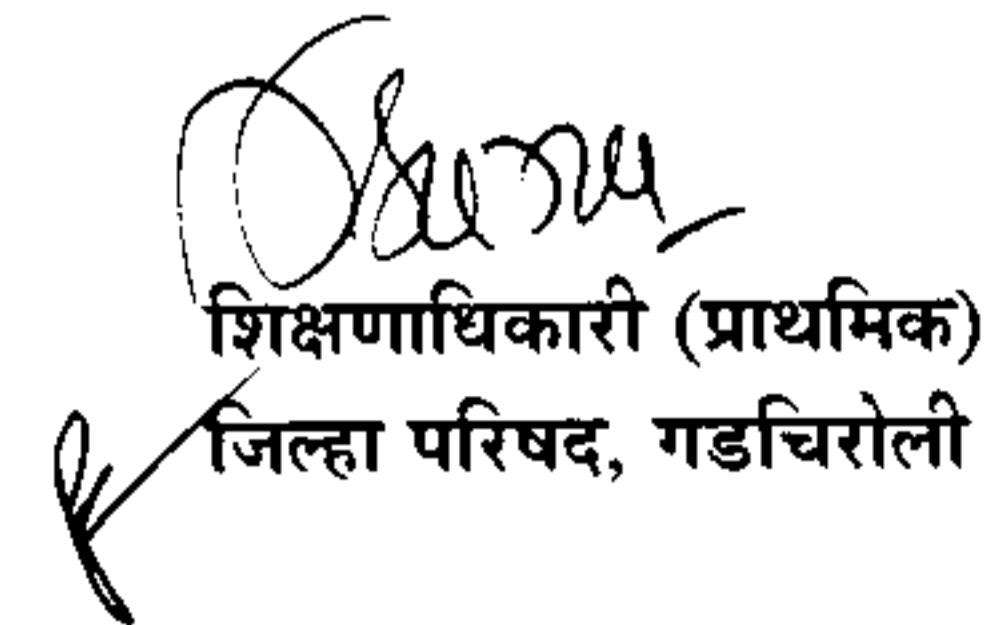 शिक्षणाधिकारी (प्राथमिक)
जिल्हा परिषद, गडचिरोली